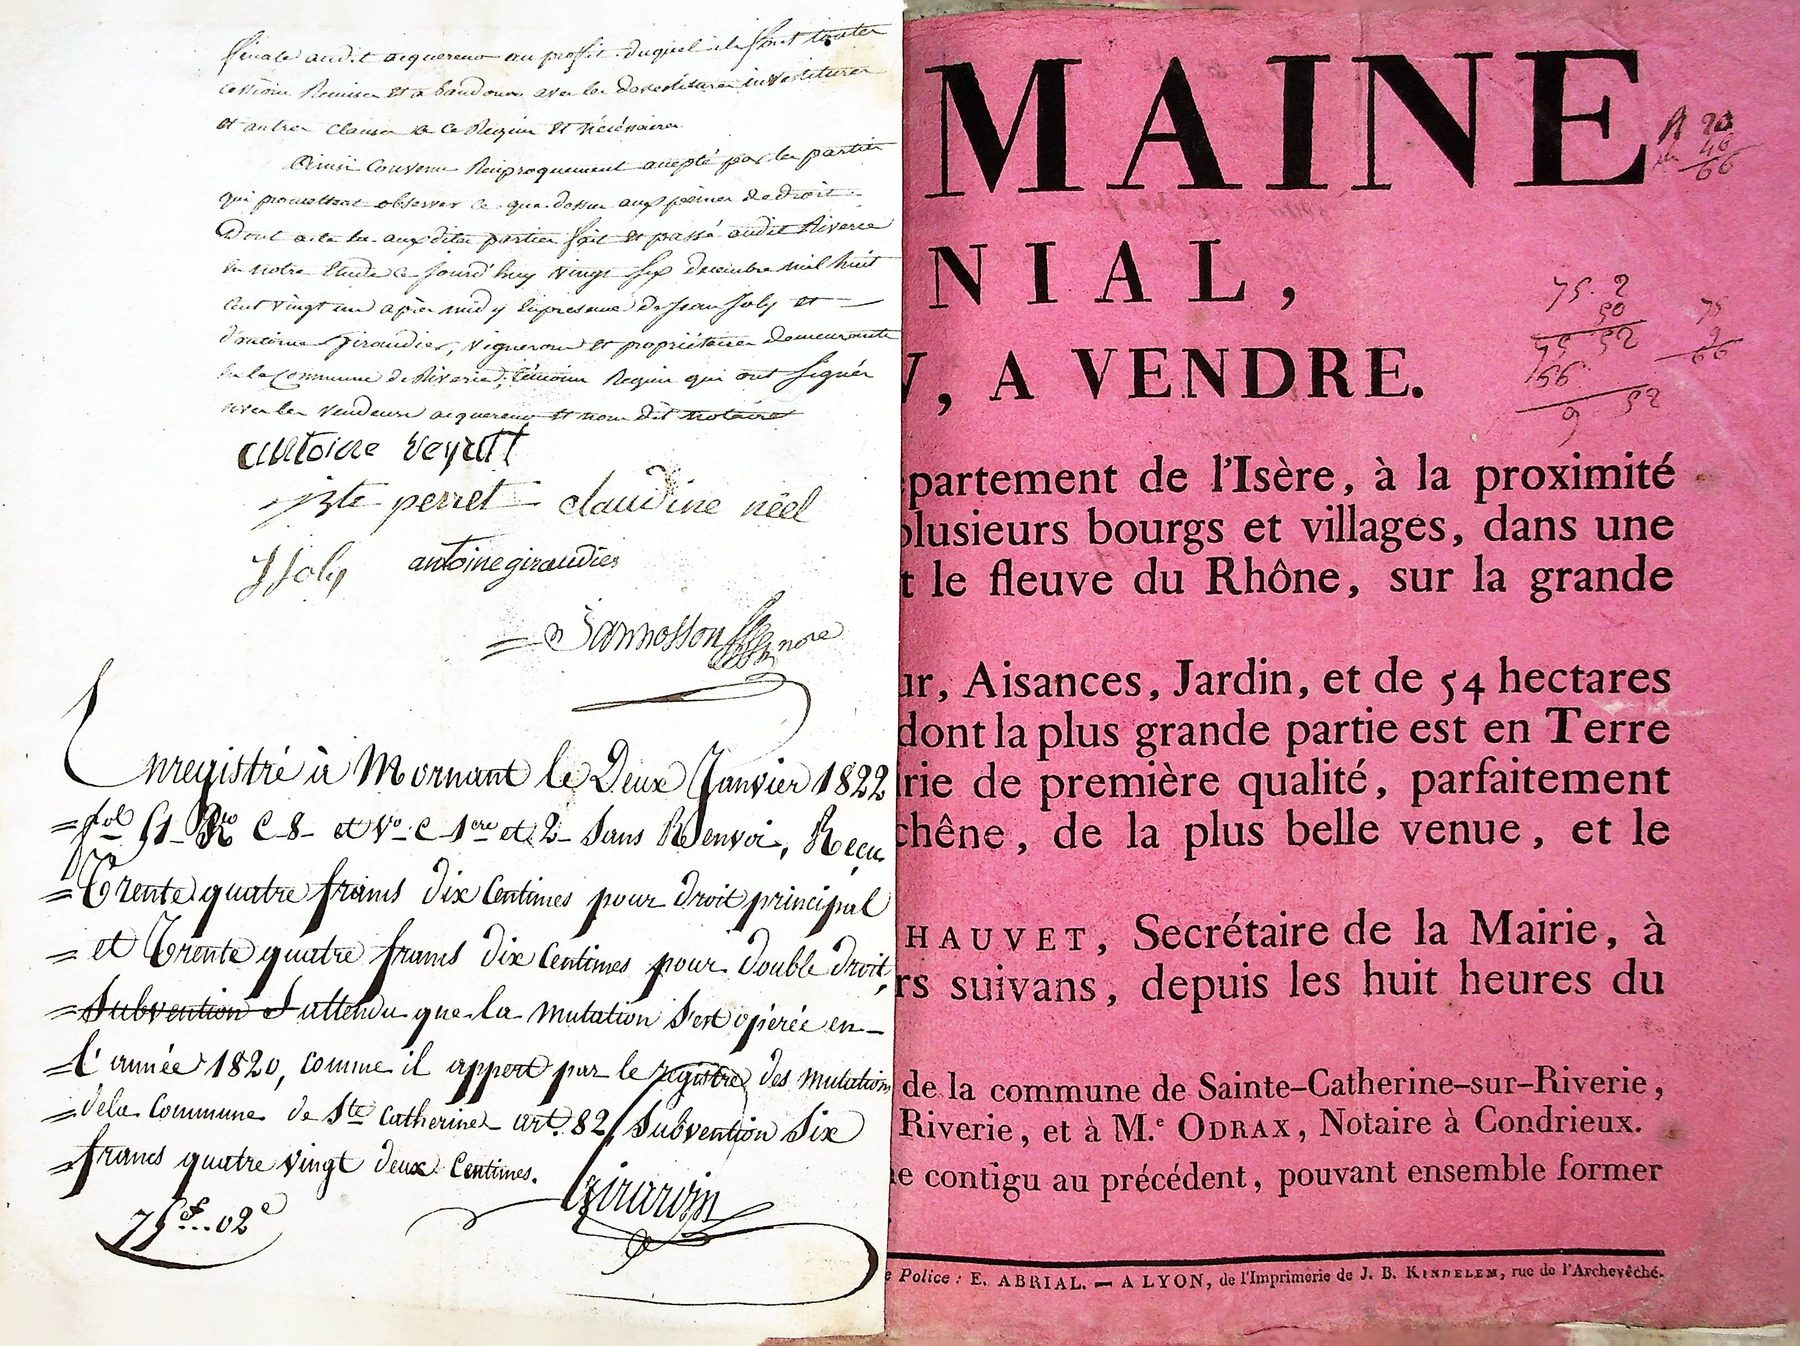 finale audit acquereur au profit duquel ils font toutes
cession Remise et abandon avec les devestitures investitures
et autres clauses à ce Requises et nécéssaires
Ainsi Convenu Réciproquement accepté par les parties
qui promettent observer ce que dessus aux peines de droit.
Dont acte lu aux dites parties fait et passé audit Riverie
en notre Etude ce jourd'huy vingt six decembre mil huit
cent vingt un après midy En presence de Jean Joly et
d'antoine Giraudier, vignerons et propriétaires demeurants
en la Commune de Riverie, témoins Requis qui ont signés
avec les vendeurs acquereur et nous dit notaire
antoine Veyrat
perret claudine néel
J Joly antoine giraudier
nore
Enregistré à Mornant le Deux Janvier 1822
fol 51 Ro C 8 et Vo C 1ere et 2 Sans Renvoi, Reçu
Trente quatre francs dix Centimes pour droit principal
et Trente quatre francs dix Centimes pour double droit,
Subvention S attendu que la mutation s'est opérée en
l'année 1820, comme il appert par le registre des mutations
dela Commune de Ste Catherine art. 82, Subvention Six
francs quatre vingt deux Centimes.
75f..02c
Girardin
MAINE
NIAL,
V, A VENDRE.
partement de l'Isère, à la proximité
plusieurs bourgs et villages, dans une
t le fleuve du Rhône, sur la grande
ur, Aisances, Jardin, et de 54 hectares
dont la plus grande partie est en Terre
rie de première qualité, parfaitement
chêne, de la plus belle venue, et le
HAUVET, Secrétaire de la Mairie, à
rs suivans, depuis les huit heures du
de la commune de Sainte-Catherine-sur-Riverie,
Riverie, et à M.e ODRAX, Notaire à Condrieux.
e contigu au précédent, pouvant ensemble former
e Police : E. ABRIAL. — A LYON, de l'Imprimerie de J. B. KINDELEM, rue de l'Archevêché.
20
46
66
75. 2
50
75 52
66
9 52
75
9
66